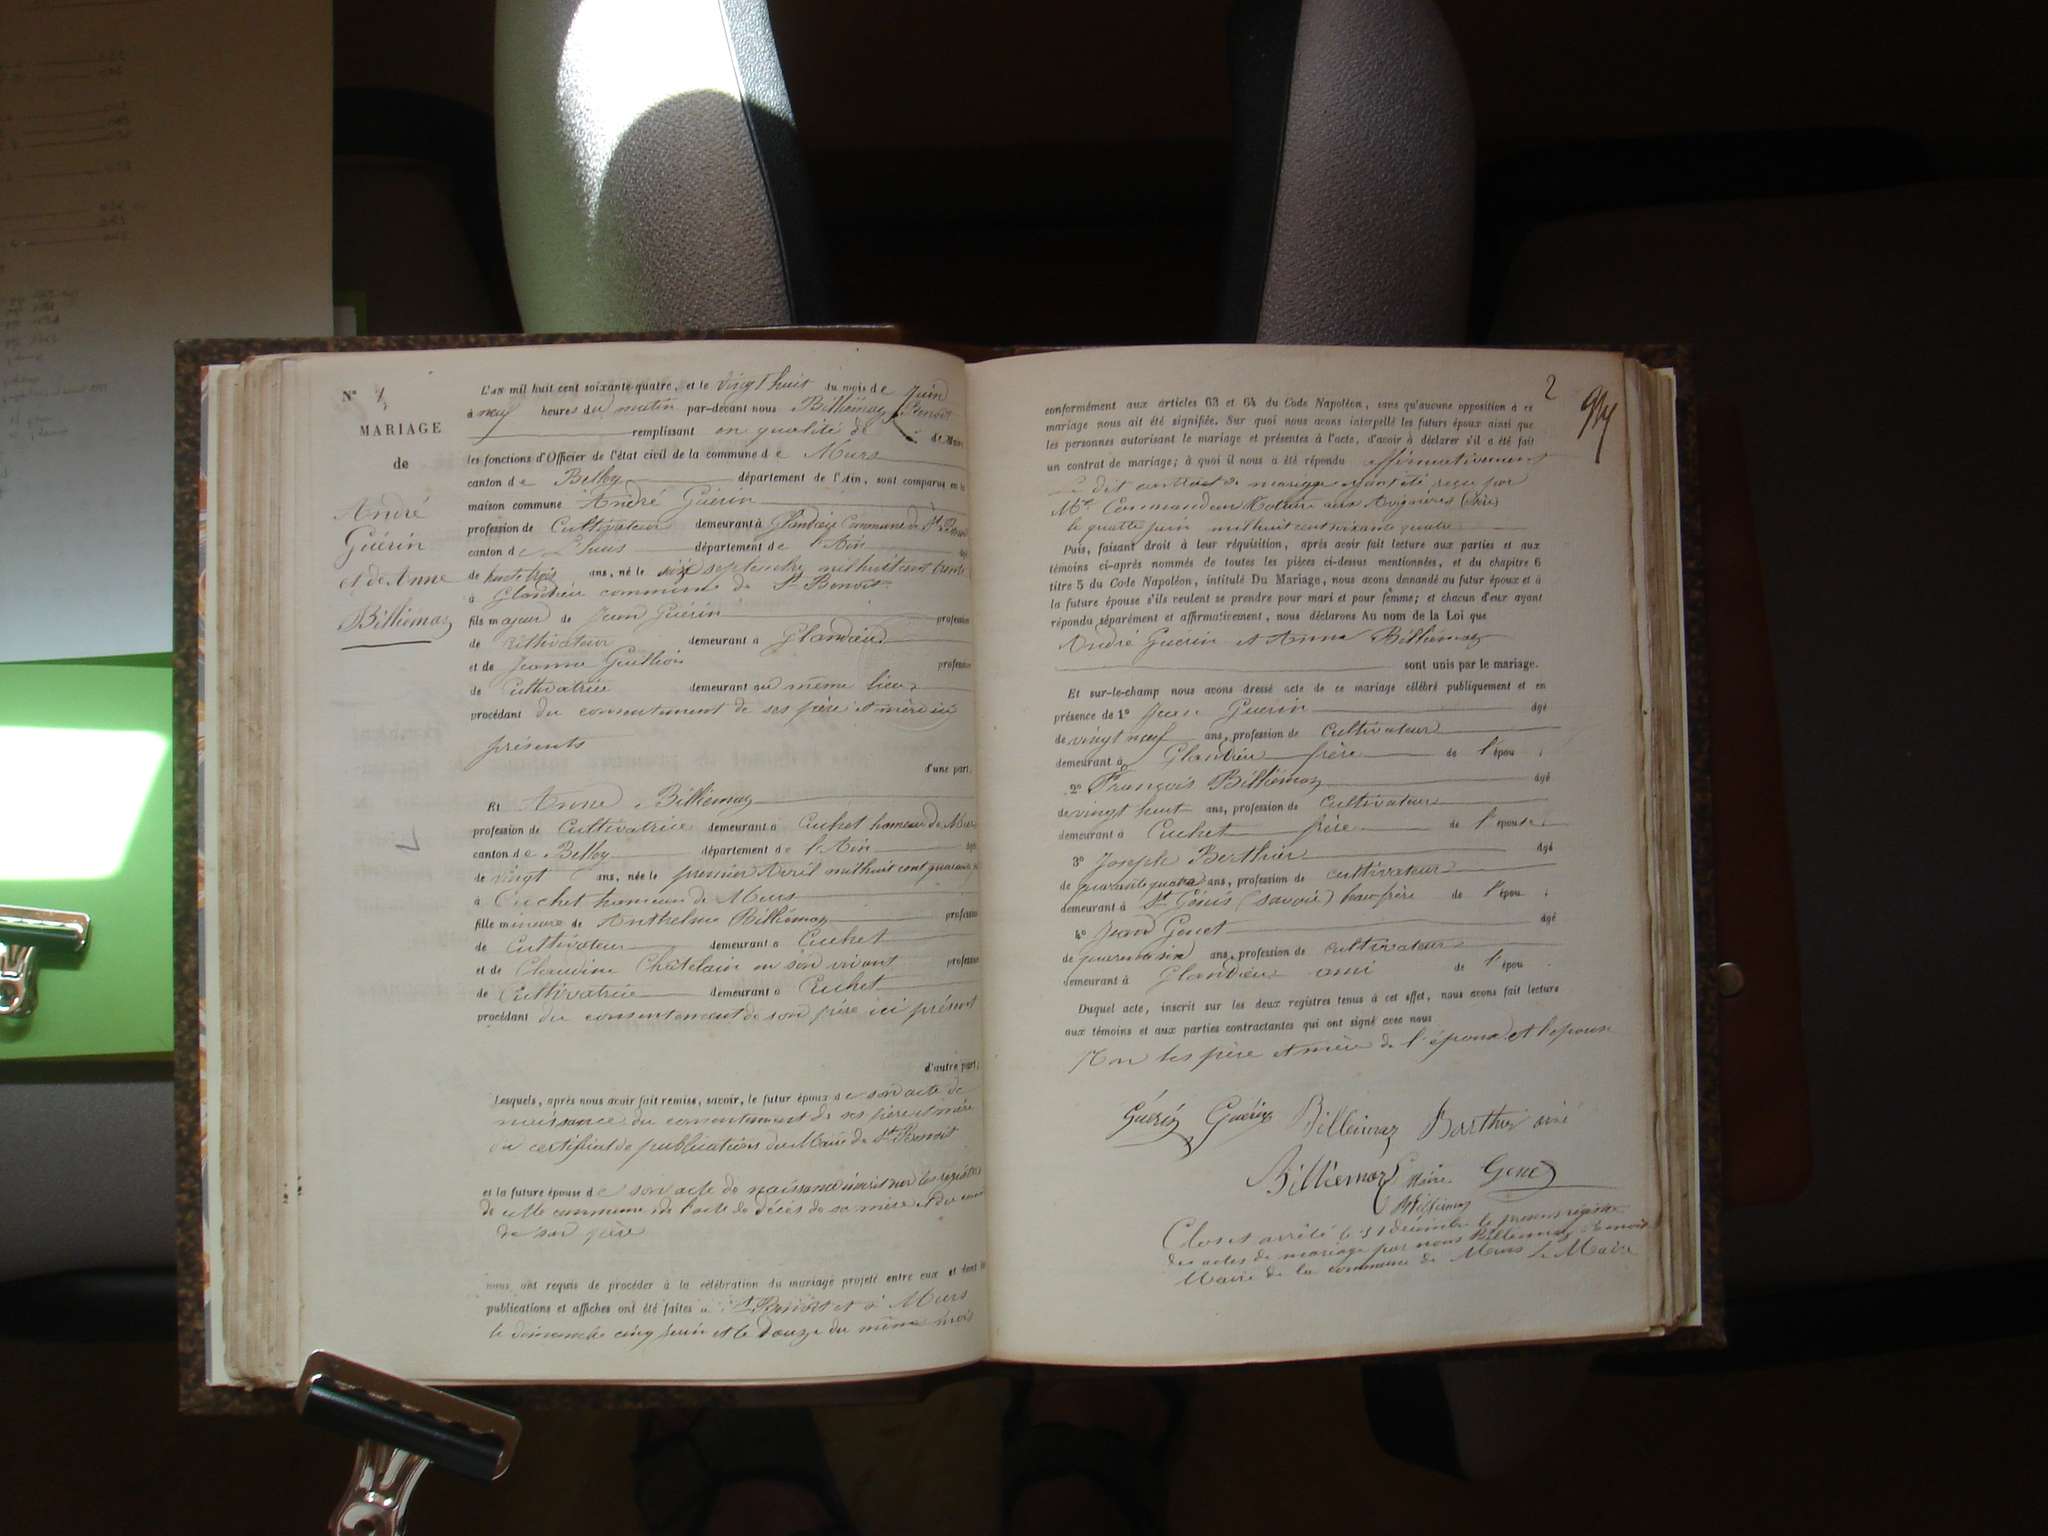 N° 4
MARIAGE
de
André
Guérin
et de Anne
Billiémaz
L'AN mil huit cent soixante-quatre, et le vingt huit du mois de Juin
à neuf heures du matin par-devant nous Billiémaz Benoit
remplissant en qualité de de Maire
les fonctions d'Officier de l'état civil de la commune de Murs
canton de Belley département de l'Ain, sont comparus en la
maison commune André Guérin
profession de Cultivateur demeurant à Glandieu Commune de St Benoit
canton de L'huis département de l'Ain âgé
de trente trois ans, né le septembre mil huit cent trente
à Glandieu commune de St Benoit
fils majeur de Jean Guérin profession
de cultivateur demeurant à Glandieu
et de Jeanne profession
de Cultivatrice demeurant au même lieu
procédant du consentement de ses père et mère ici
présents
d'une part.
Et Anne Billiemaz
profession de Cultivatrice demeurant à Cuchet hameau de Murs
canton de Belley département de l'Ain âgé
de vingt ans, née le premier Avril mil huit cent quarante
à Cuchet hameau de Murs
fille mineure de Anthelme Billiémaz profession
de Cultivateur demeurant à Cuchet
et de Claudine Châtelain en son vivant profession
de Cultivatrice demeurant à Cuchet
procédant du consentement de son père ici présent
d'autre part;
Lesquels, après nous avoir fait remise, savoir, le futur époux de son acte de
naissance du consentement de ses père et mère
du certificat de publications du Maire de St Benoit
et la future épouse de son acte de naissance inscrit sur les registres
de cette commune de l'acte de décès de sa mère et du
de son père
nous ont requis de procéder à la célébration du mariage projeté entre eux et dont les
publications et affiches ont été faites à St Benoit et à Murs
le dimanche cinq juin et le Douze du même mois
2
conformément aux articles 63 et 64 du Code Napoléon, sans qu'aucune opposition à ce
mariage nous ait été signifiée. Sur quoi nous avons interpellé les futurs époux ainsi que
les personnes autorisant le mariage et présentes à l'acte, d'avoir à déclarer s'il a été fait
un contrat de mariage; à quoi il nous a été répondu affirmativement
Le dit contrat de mariage ayant été reçu par
Me Commandeur Notaire aux Avenières (Isère)
le quatre juin mil huit cent soixante quatre
Puis, faisant droit à leur réquisition, après avoir fait lecture aux parties et aux
témoins ci-après nommés de toutes les pièces ci-dessus mentionnées, et du chapitre 6
titre 5 du Code Napoléon, intitulé Du Mariage, nous avons demandé au futur époux et à
la future épouse s'ils veulent se prendre pour mari et pour femme; et chacun d'eux ayant
répondu séparément et affirmativement, nous déclarons Au nom de la Loi que
André Guerin et Anne Billiémaz
sont unis par le mariage.
Et sur-le-champ nous avons dressé acte de ce mariage célébré publiquement et en
présence de 1° Jean Guerin âgé
de vingt neuf ans, profession de cultivateur
demeurant à Glandieu frère de l'épou
2° François Billiémaz âgé
de vingt huit ans, profession de cultivateur
demeurant à Cuchet frère de l'épouse
3° Joseph Berthier âgé
de quarante quatre ans, profession de cultivateur
demeurant à St Génis (savoie) beau frère de l'épou
4° Jean Genet âgé
de quarante six ans, profession de cultivateur
demeurant à Glandieu ami de l'épou
Duquel acte, inscrit sur les deux registres tenus à cet effet, nous avons fait lecture
aux témoins et aux parties contractantes qui ont signé avec nous
Non les père et mère de l'époux et l'épouse
Guérin Guérin Billiemaz Berthier
Billiemaz Maire Genet
Billiemaz
Clos et arrêté le 31 décembre le présent registre
des actes de mariage par nous Billiemaz Benoit
Maire de la commune de Murs Le Maire